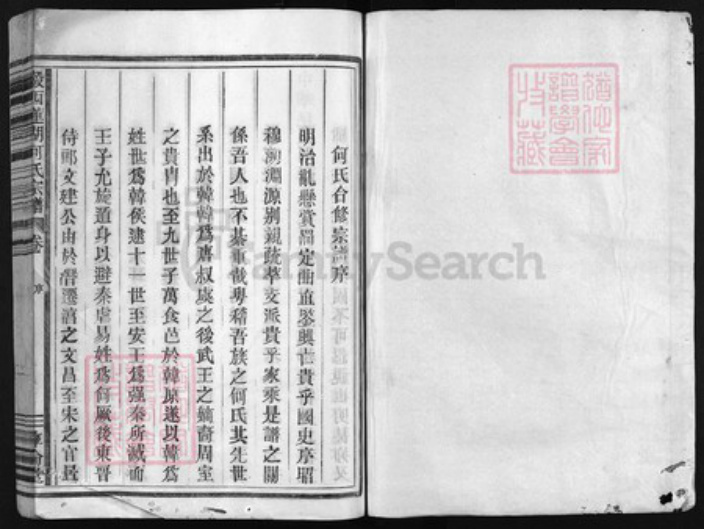 何氏合修宗譜序
明治亂懸賞罰定曲直鑒興亡貴乎國史序昭
穆溯淵源别親疏萃支派貴乎家乘是譜之關
係吾人也不綦重哉粤稽吾族之何氏其先世
系出於韓韓爲唐叔虞之後武王之嫡裔周室
之貴胄也至九世子萬食邑於韓原遂以韓爲
姓世爲韓侯逮十一世至安王爲强秦所滅而
王子允旋遁身以避秦虐易姓爲何厥後東晋
侍郎文建公由於潛遷湻之文昌至宋之官
西蓮湖何氏宗譜 卷 序
FamilySearch